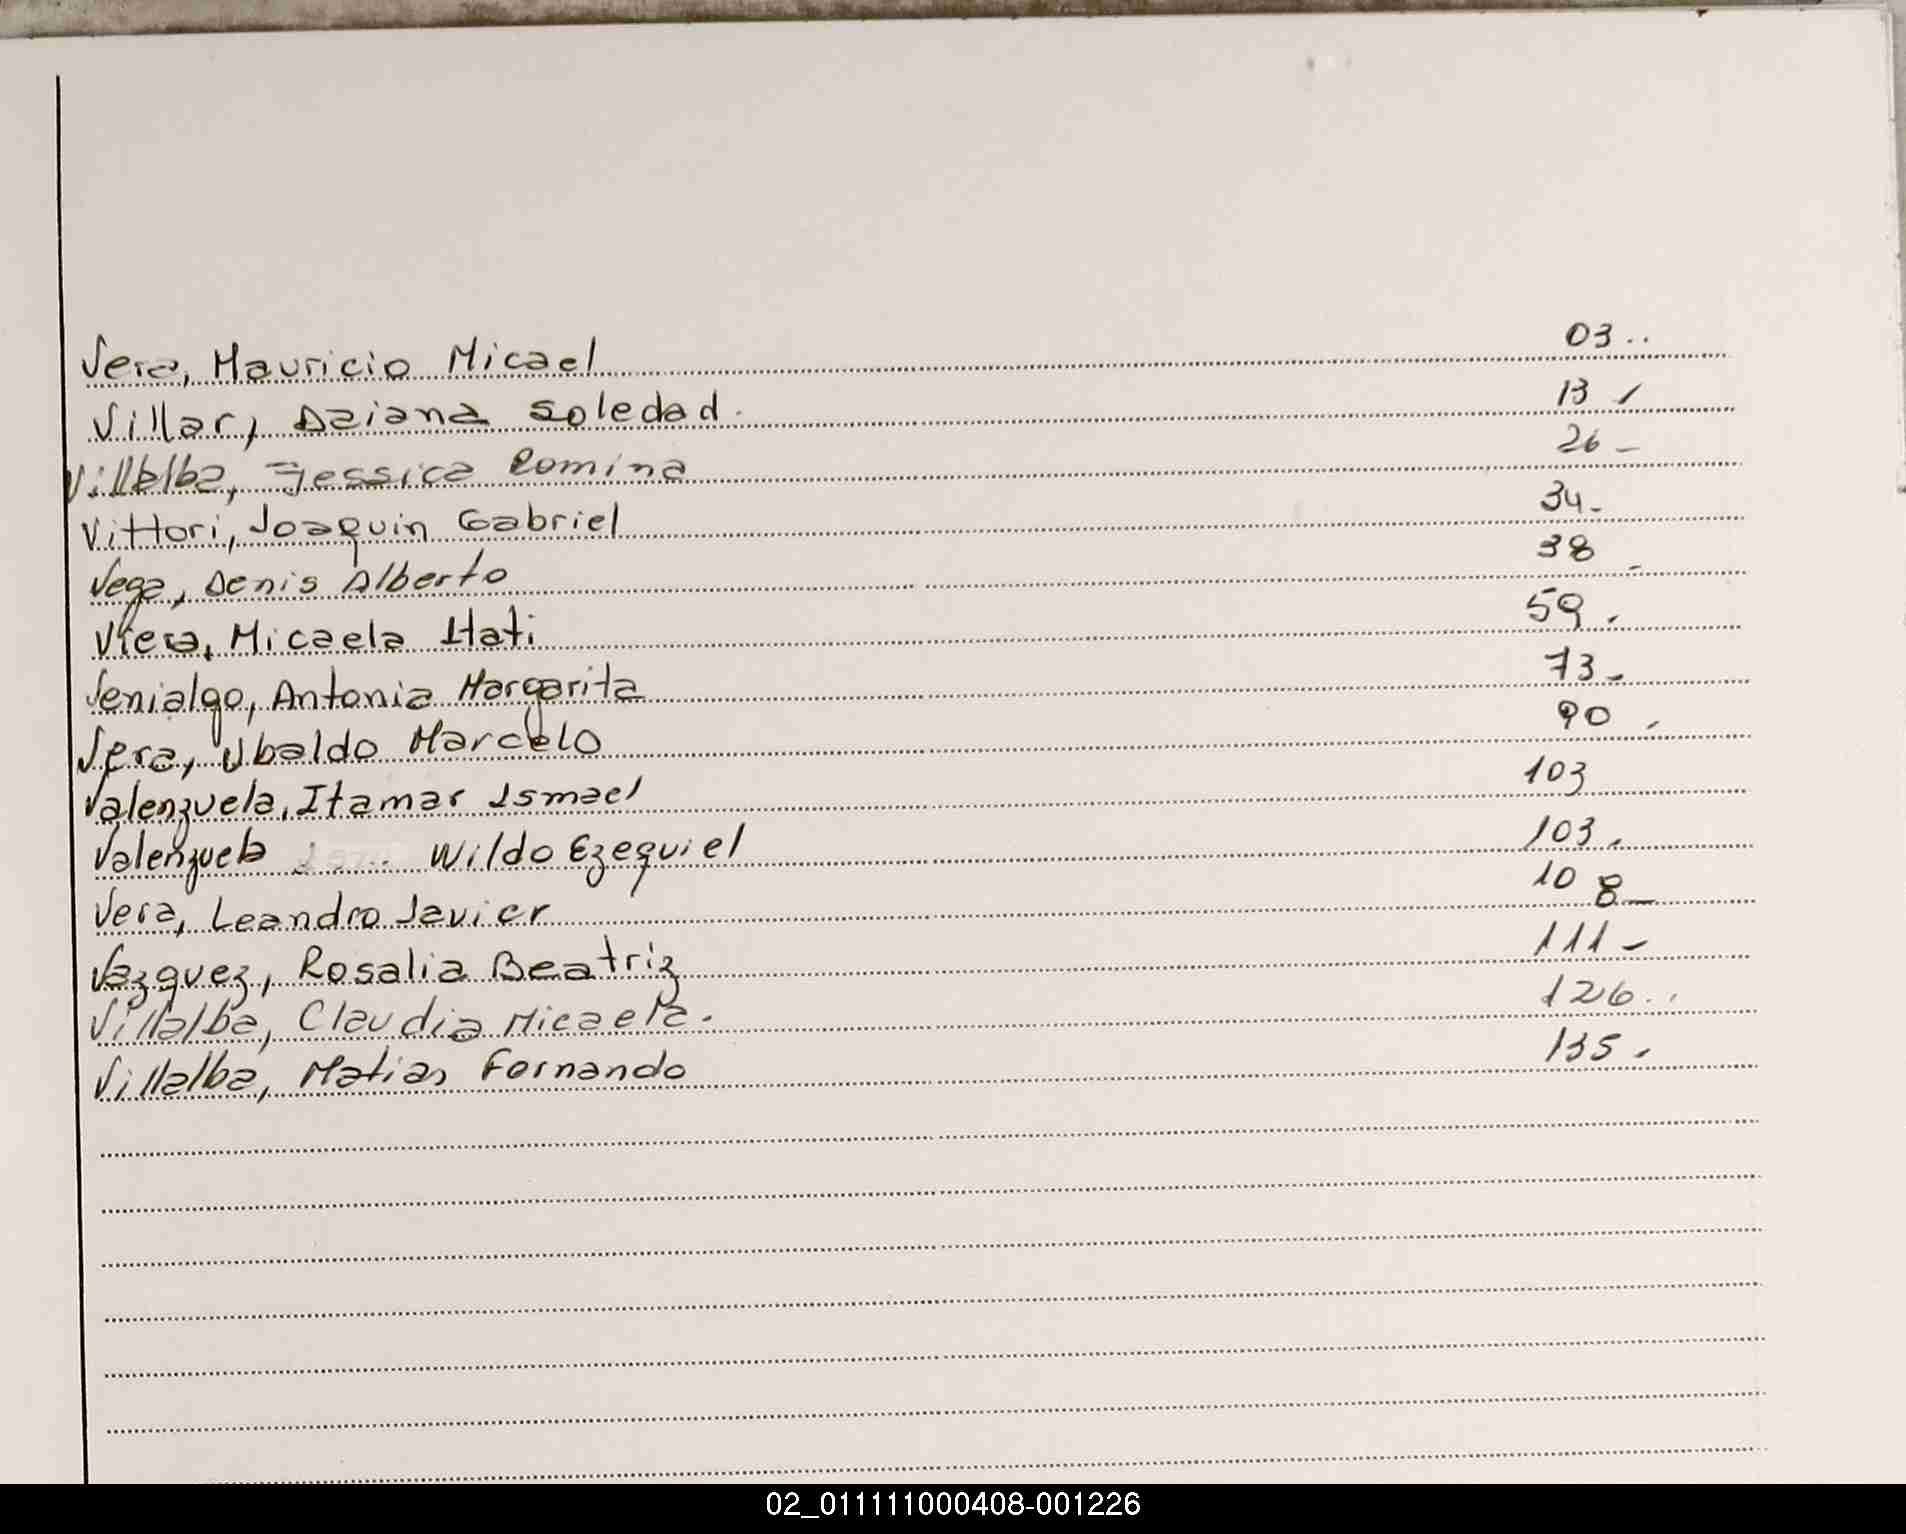 Vera, Mauricio Micael 03..
Villar, Daiana Soledad. 13 -
Villalba, Jessica Romina 26 -
Vittori, Joaquin Gabriel 34.
Vega, Denis Alberto 38 -
Viera, Micaela Itati 59.
Venialgo, Antonia Margarita 73-
Vera, Ubaldo Marcelo 90.
Valenzuela, Itamar Ismael 103
Valenzuela Wildo Ezequiel 103.
Vera, Leandro Javier 108-
Vazquez, Rosalia Beatriz 111-
Villalba, Claudia Micaela. 126..
Villalba, Matias Fernando 135.
02_011111000408-001226